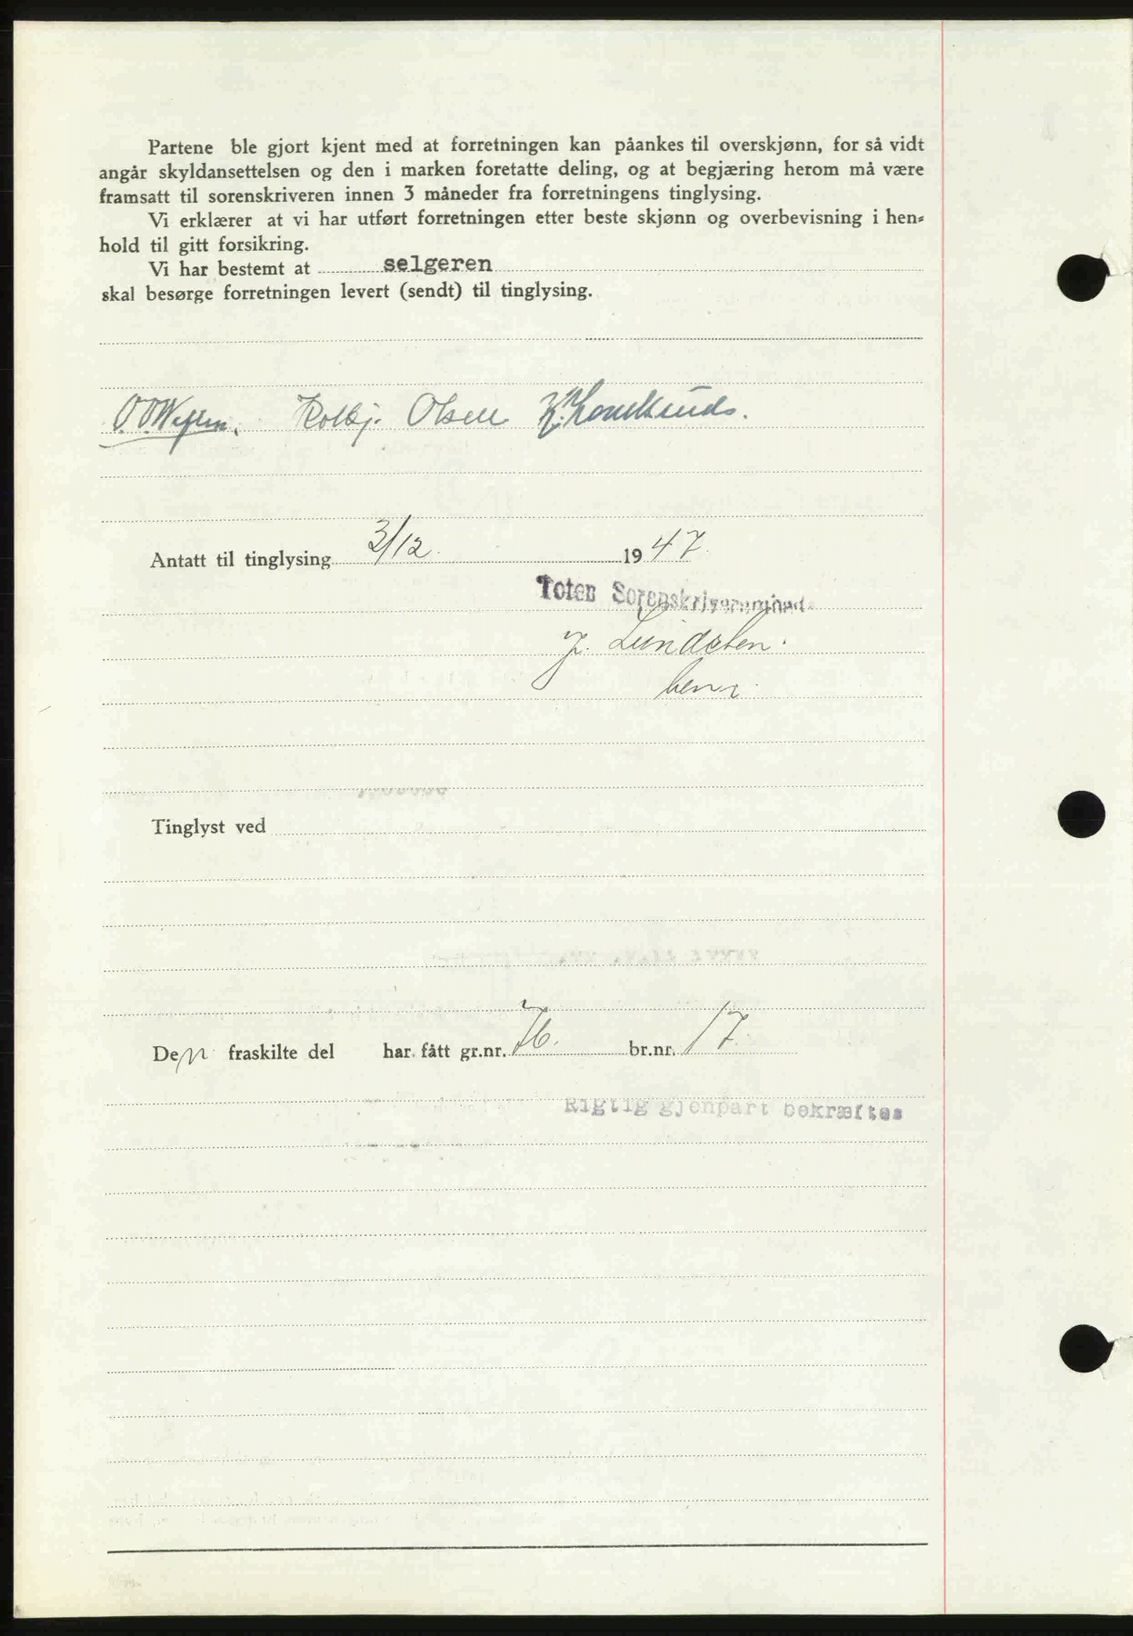 Partene ble gjort kjent med at forretningen kan påankes til overskjønn, for så vidt
angår skyldansettelsen og den i marken foretatte deling, og at begjæring herom må være
framsatt til sorenskriveren innen 3 måneder fra forretningens tinglysing.
Vi erklærer at vi har utført forretningen etter beste skjønn og overbevisning i hen-
hold til gitt forsikring.
Vi har bestemt at selgeren
skal besørge forretningen levert (sendt) til tinglysing.
Kolbj. Olsen
Antatt til tinglysing 3/12. 1947.
Toten Sorenskriverembede
Tinglyst ved
Den fraskilte del har fått gr.nr. 76. br.nr. 17.
Rigtig gjenpart bekræftes